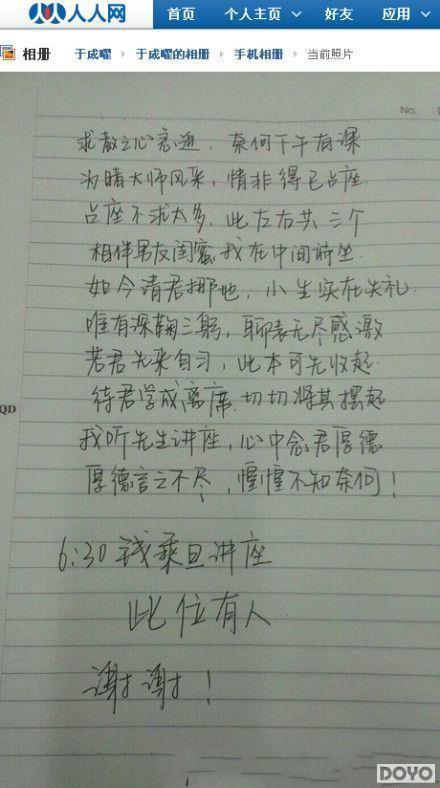 人人网 首页 个人主页 好友 应用
相册 于成曜 › 于成曜的相册 › 手机相册 › 当前照片
No.
求教之心窃迫，奈何下午有课
为睹大师风采，情非得已占座
占座不求太多，此左右共三个
相伴男友闺蜜，我在中间前坐
如今请君挪地，小生实在失礼
唯有深鞠三躬，聊表无尽感激
若君先来自习，此本可先收起
QD
待君学成离席，切切将其摆起
我听先生讲座，心中念君厚德
厚德言之不尽，惺惺不知奈何！
6:30钱乘旦讲座
此位有人
谢谢！
DOYO